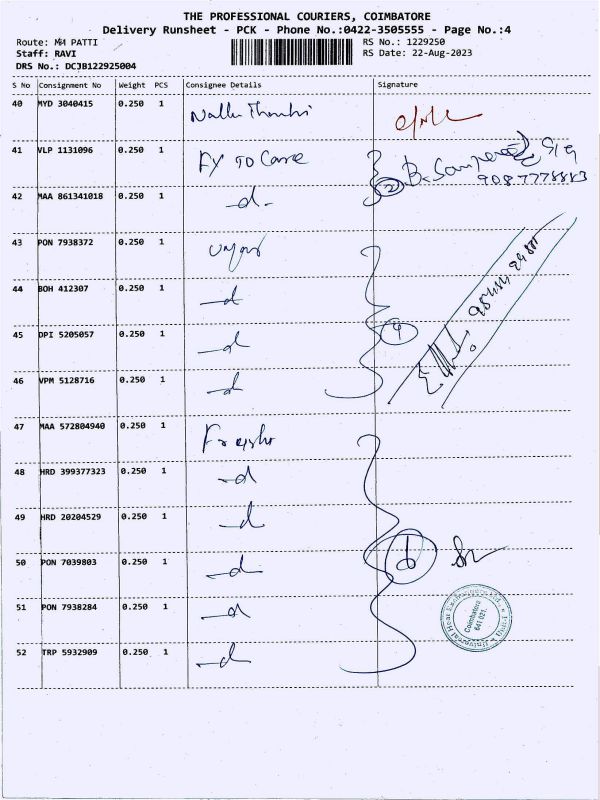 THE PROFESSIONAL COURIERS, COIMBATORE
Delivery Runsheet - PCK - Phone No.:0422-3505555 - Page No.:4
Route: PATTI
RS No.: 1229250
Staff: RAVI
RS Date: 22-Aug-2023
DRS No.: DCJB122925004
S No Consignment No Weight PCS Consignee Details Signature
40 MYD 3040415 0.250 1
41 VLP 1131096 0.250 1 FY TO Care
9087778883
42 MAA 861341018 0.250 1 -d- 2
43 PON 7938372 0.250 1
44 BOH 412307 0.250 1 -d
45 DPI 5205057 0.250 1 -d 4
46 VPM 5128716 0.250 1 -d
47 MAA 572804940 0.250 1
48 HRD 399377323 0.250 1 -d
49 HRD 20204529 0.250 1 -d
50 PON 7039803 0.250 1 -d 6
51 PON 7938284 0.250 1 -d
Coimbatore
641 021.
52 TRP 5932909 0.250 1 -d